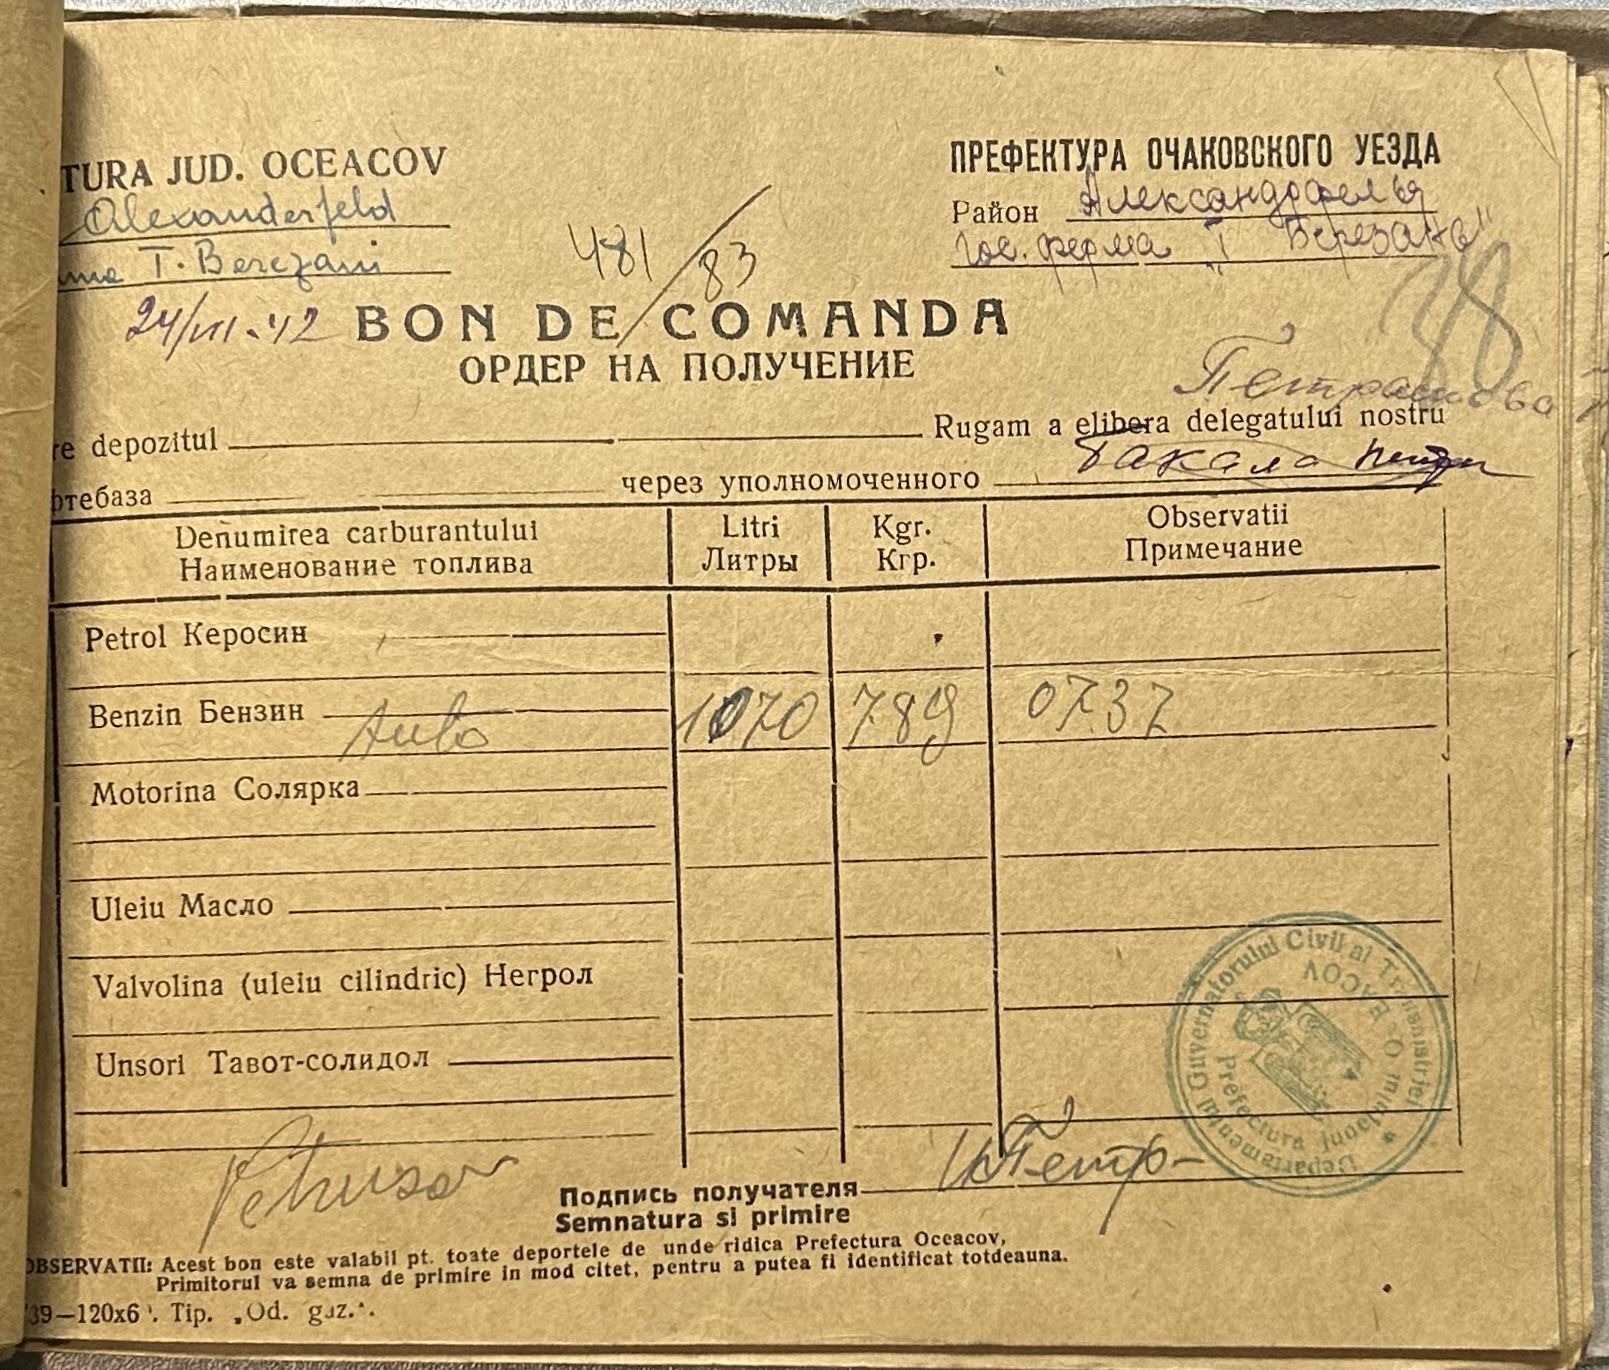 TURA JUD. OCEACOV
ПРЕФЕКТУРА ОЧАКОВСКОГО УЕЗДА
Alexanderfeld
Район Александрфельд
T. Berezani
Гос. ферма „Т Березань"
481/83
38
24/VII-42
BON DE COMANDA
ОРДЕР НА ПОЛУЧЕНИЕ
re depozitul Rugam a elibera delegatului nostru
фтебаза через уполномоченного
Denumirea carburantului Litri Kgr. Observatii
Наименование топлива Литры Кгр. Примечание
Petrol Керосин
Benzin Бензин Auto 1070 789 0737
Motorina Солярка
Uleiu Масло
Valvolina (uleiu cilindric) Негрол
Unsori Тавот-солидол
Departamentul Guvernatorului Civil al Transnistriei
Prefectura Judeţului OCEACOV
Подпись получателя
Semnatura si primire
OBSERVATII: Acest bon este valabil pt. toate deportele de unde ridica Prefectura Oceacov,
Primitorul va semna de primire in mod citet, pentru a putea fi identificat totdeauna.
39—120x6 . Tip. „Od. gaz.".